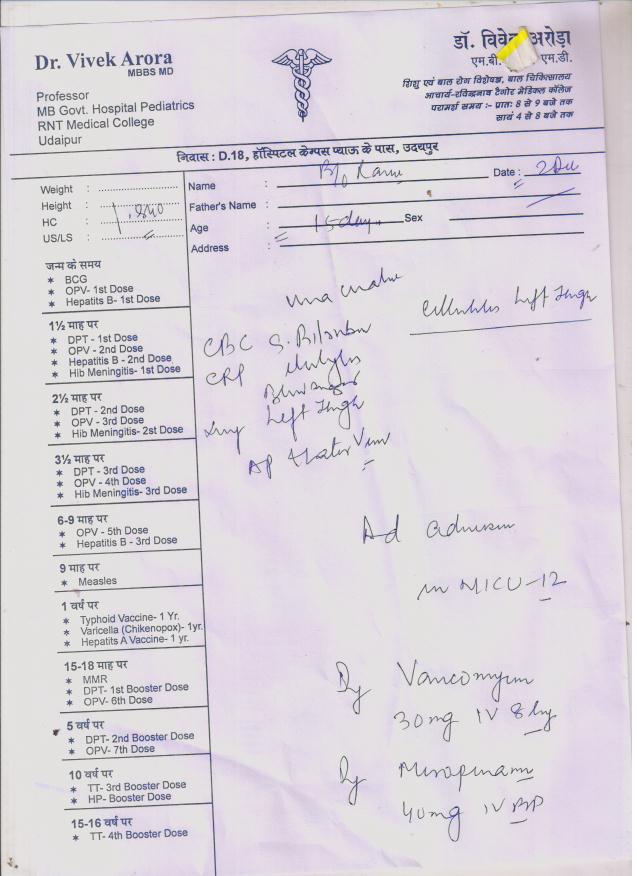 Dr. Vivek Arora
MBBS MD
Professor
MB Govt. Hospital Pediatrics
RNT Medical College
Udaipur
डॉ. अरोड़ा
एम.बी. एम.डी.
शिशु एवं बाल रोग विशेषज्ञ, बाल चिकित्सालय
आचार्य-रविन्द्रनाथ टैगोर मेडिकल कॉलेज
परामर्श समय :- प्रातः 8 से 9 बजे तक
सायं 4 से 8 बजे तक
निवास : D.18, हॉस्पिटल केम्पस प्याऊ के पास, उदयपुर
Weight :
Height :
HC :
US/LS :
Name : B/o
Date :
Father's Name :
Age : 15 days Sex
Address :
जन्म के समय
* BCG
* OPV- 1st Dose
* Hepatitis B- 1st Dose
1½ माह पर
* DPT - 1st Dose
* OPV - 2nd Dose
* Hepatitis B - 2nd Dose
* Hib Meningitis- 1st Dose
2½ माह पर
* DPT - 2nd Dose
* OPV - 3rd Dose
* Hib Meningitis- 2st Dose
3½ माह पर
* DPT - 3rd Dose
* OPV - 4th Dose
* Hib Meningitis- 3rd Dose
6-9 माह पर
* OPV - 5th Dose
* Hepatitis B - 3rd Dose
9 माह पर
* Measles
1 वर्ष पर
* Typhoid Vaccine- 1 Yr.
* Varicella (Chikenopox)- 1yr.
* Hepatits A Vaccine- 1 yr.
15-18 माह पर
* MMR
* DPT- 1st Booster Dose
* OPV- 6th Dose
5 वर्ष पर
* DPT- 2nd Booster Dose
* OPV- 7th Dose
10 वर्ष पर
* TT- 3rd Booster Dose
* HP- Booster Dose
15-16 वर्ष पर
* TT- 4th Booster Dose
Cellulitis Left Thigh
CBC S. Bilirubin
CRP
Left Thigh
AP & Later View
Ad admission
in MICU-12
Vancomycin
30mg IV 8 hly
40mg IV